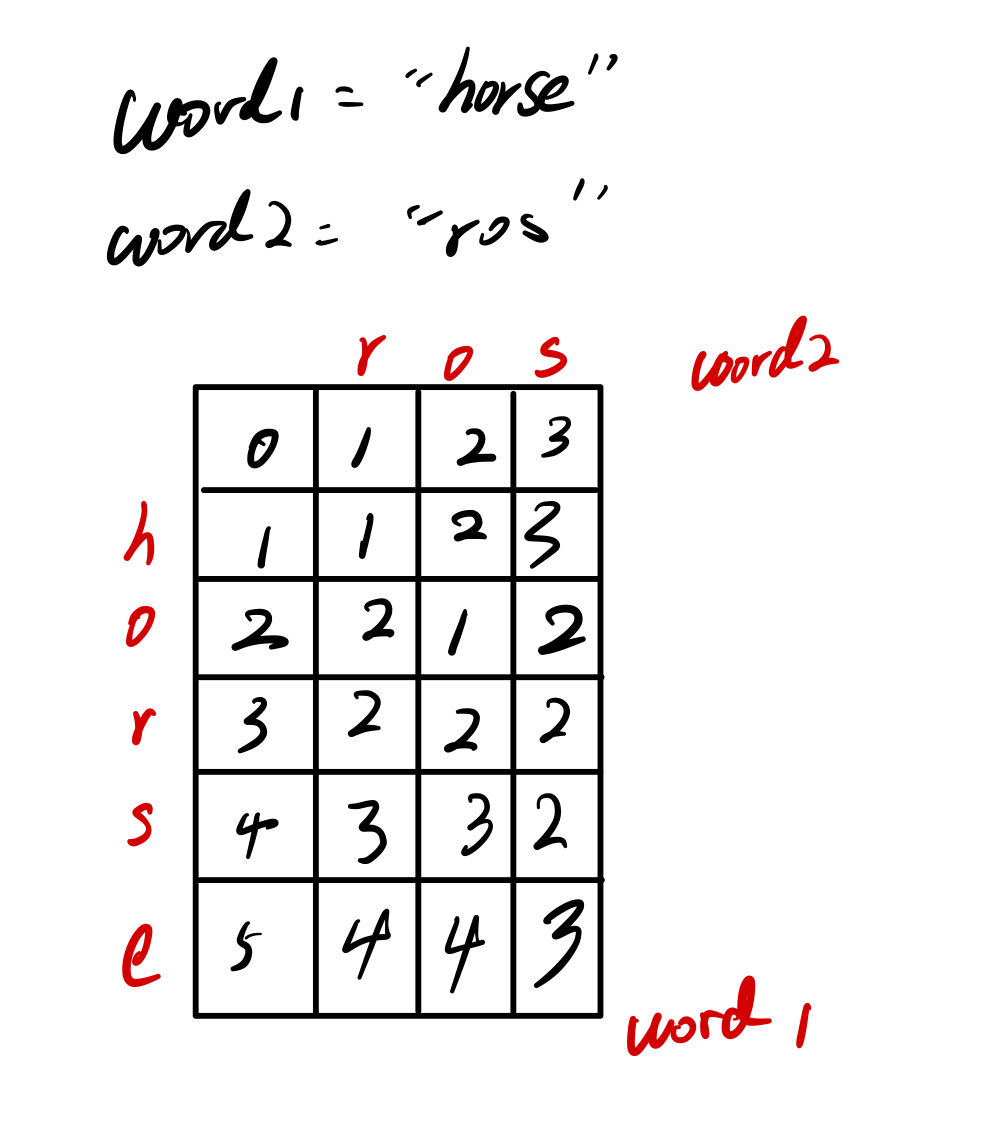 word1 = "horse"
word2 = "ros"
r o s word2
0 1 2 3
h 1 1 2 3
o 2 2 1 2
r 3 2 2 2
s 4 3 3 2
e 5 4 4 3
word1